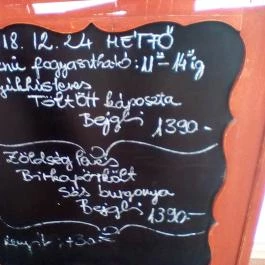 18.12.24 HÉTFŐ
fogyasztható: 11³⁰-14³⁰ig
Töltött káposzta
Bejgli
1390.-
Zöldség leves
Birkapörkölt
Sós burgonya
Bejgli
1390.-